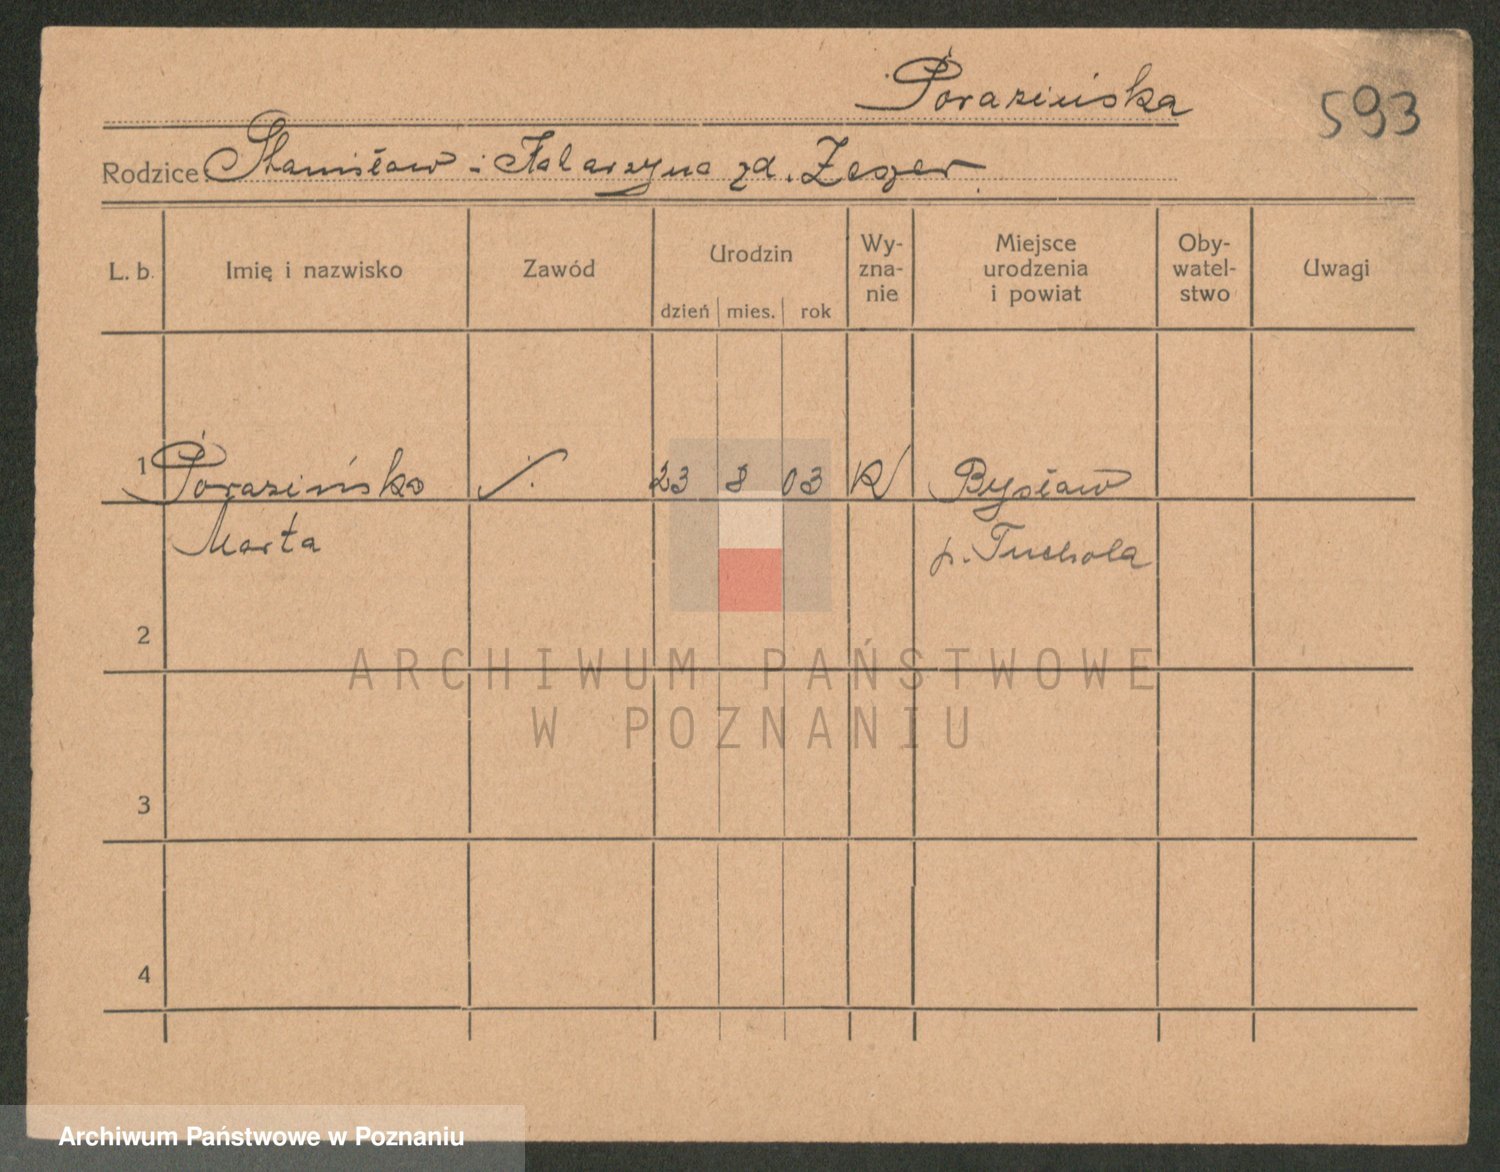 Porazińska
593
Rodzice: Stanisław i Katarzyna zd. Zeger
L. b. Imię i nazwisko Zawód Urodzin Wy-zna-nie Miejsce urodzenia i powiat Oby-watel-stwo Uwagi
dzień mies. rok
1 Porazińska /. 23 8 03 R Bysław
Marta p. Tuchola
2
3
4
ARCHIWUM PAŃSTWOWE
W POZNANIU
Archiwum Państwowe w Poznaniu